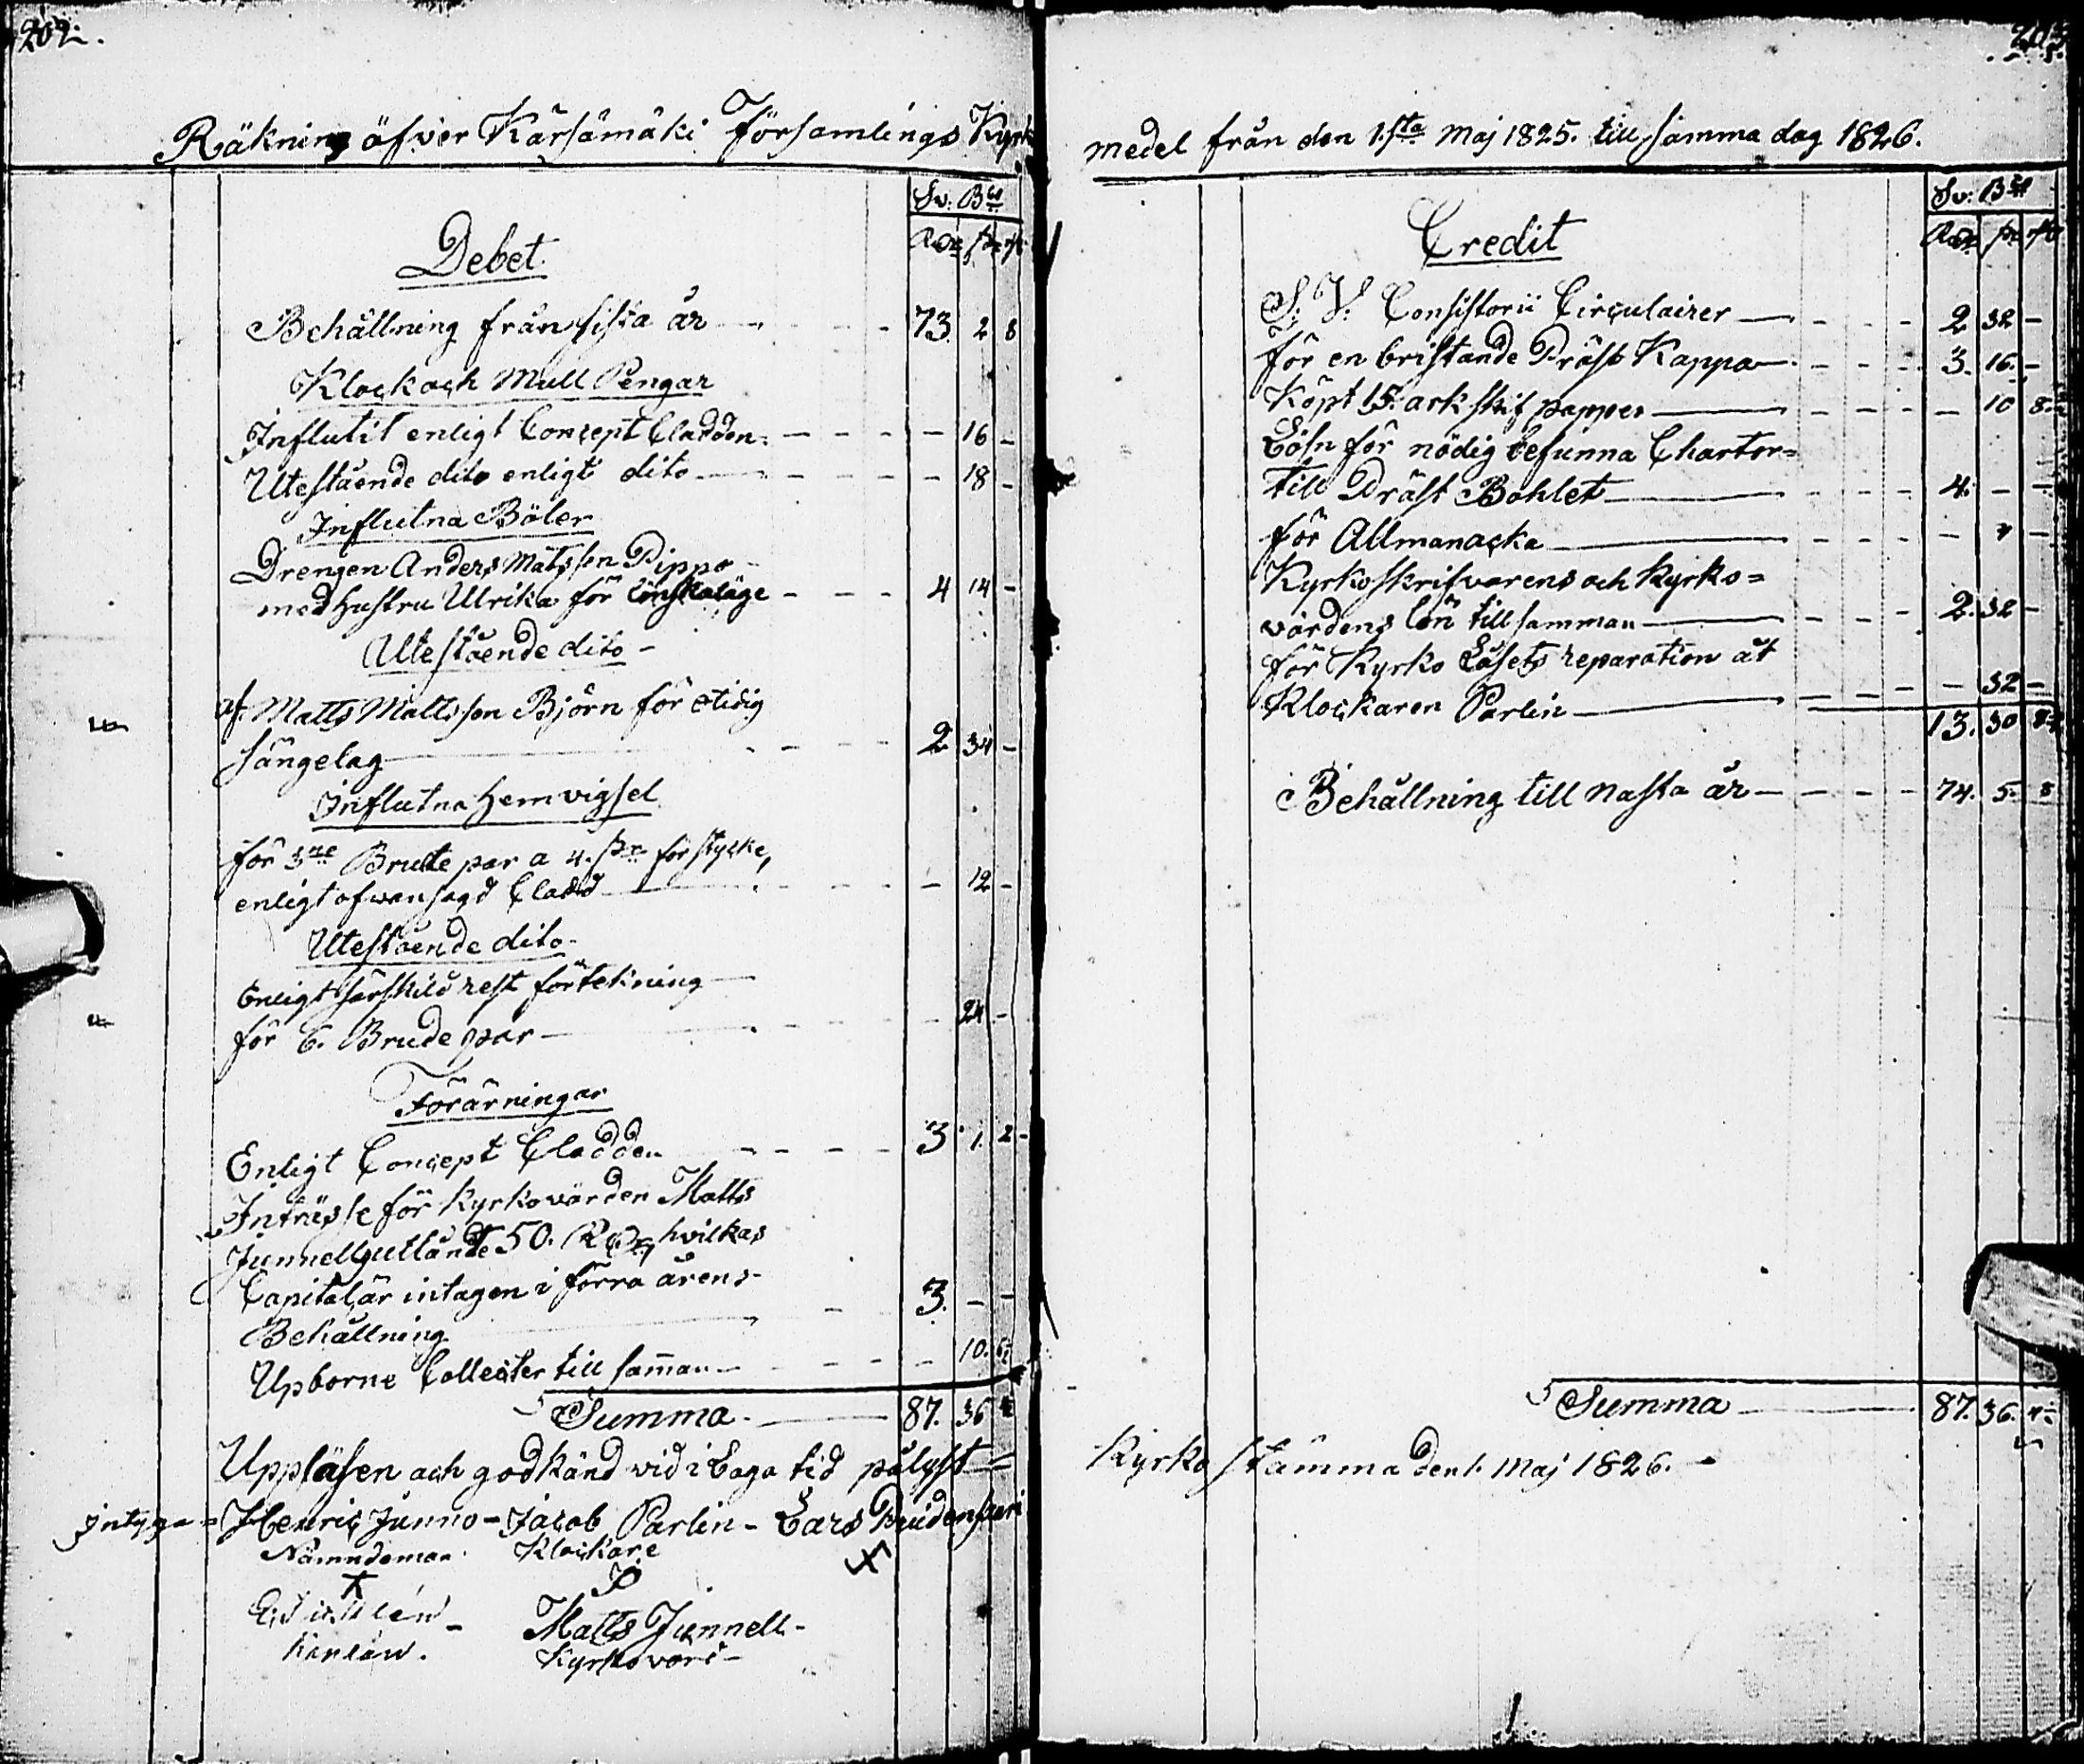 202.
Räkning öfver Kärsämäki Församlings Kyrk
Sv: B
Debet.
Behållning från sista år 73. 2 8
Klock och Mull Pengar
Influtit enligt Concept Cladden - 16 -
Utestående dito enligt dito - 18 -
Influtna Böter
Drengen Anders Matsson Pippo
med hustru Ulrika för Lönskaläge 4 14 -
Utestående dito
af. Matts Mattsson Björn för otidig
sängelag 2 34 -
Influtna hemvigsel
för 3ne Brude par a 4. för stycke,
enligt ofvansagd Cladd - 12 -
Utestående dito
Enligt särskild rest förtekning
för 6. Brude par - 24 -
Förärningar
Enligt Concept Cladden 3 1. 2
Intresse för Kyrkovärden Matts
Junnell utlånte 50. hvilkas
Capital är intagen i förra årens
Behållning 3. - -
Upborne Collecter till samman - 10. 6
Summa 87. 36
Uppläsen och godkänd vid i Laga tid pålyst
Intyga Henric Junno - Jacob Parlin - Lars
Nämndeman Klockare
Matts Junnell
Kyrkovärd
medel från den 1sta Maj 1825. till samma dag 1826.
Sv: B
Credit
S. V. Consistorii Circulairer 2 32 -
för en bristande Präst Kappa 3. 16. -
Köpt 15. ark skrif papper - 10 8
Lösn för nödig befunna Chartor=
till Präst Bohlet 4. - -
för Allmanacka -
Kyrkoskrifvarens och Kyrko=
värdens Lön till samman 2. 32 -
för Kyrko Låsets reparation åt
Klockaren Parlin - 32 -
13. 30 8
Behållning till nästa år 74. 5. 8
Summa 87. 36.
Kyrko stämma den 1. Maj 1826.